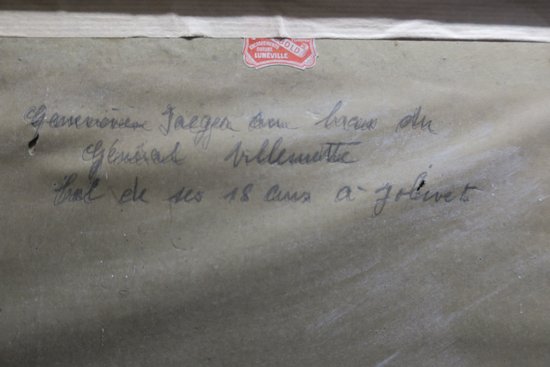 GOLD
ENCADREMENTS
LUNÉVILLE
Geneviève Jaeger au bras du
Général Villemotte
bal de ses 18 ans à Jolivet